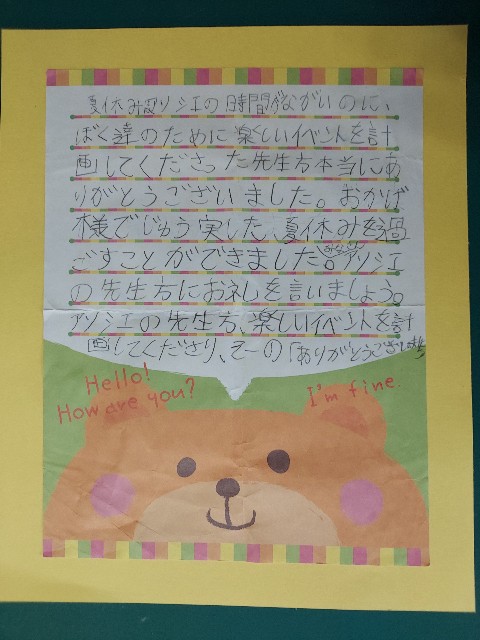 夏休み アソシエの時間がながいのに、
ぼく達のために楽しいイベントを計
画してくださった先生方本当にあ
りがとうございました。おかげ
様でじゅう実した夏休みを過
ごすことができました。アソシエ
の先生方にお礼を言いましょう。
アソシエの先生方、楽しいイベントを計
画してくださり、せーの「ありがとうござい
Hello!
How are you?
I'm fine.